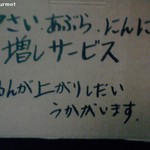 urmet
やさい・あぶら・にんに
増しサービス
が上がりしだい
うかがいます。